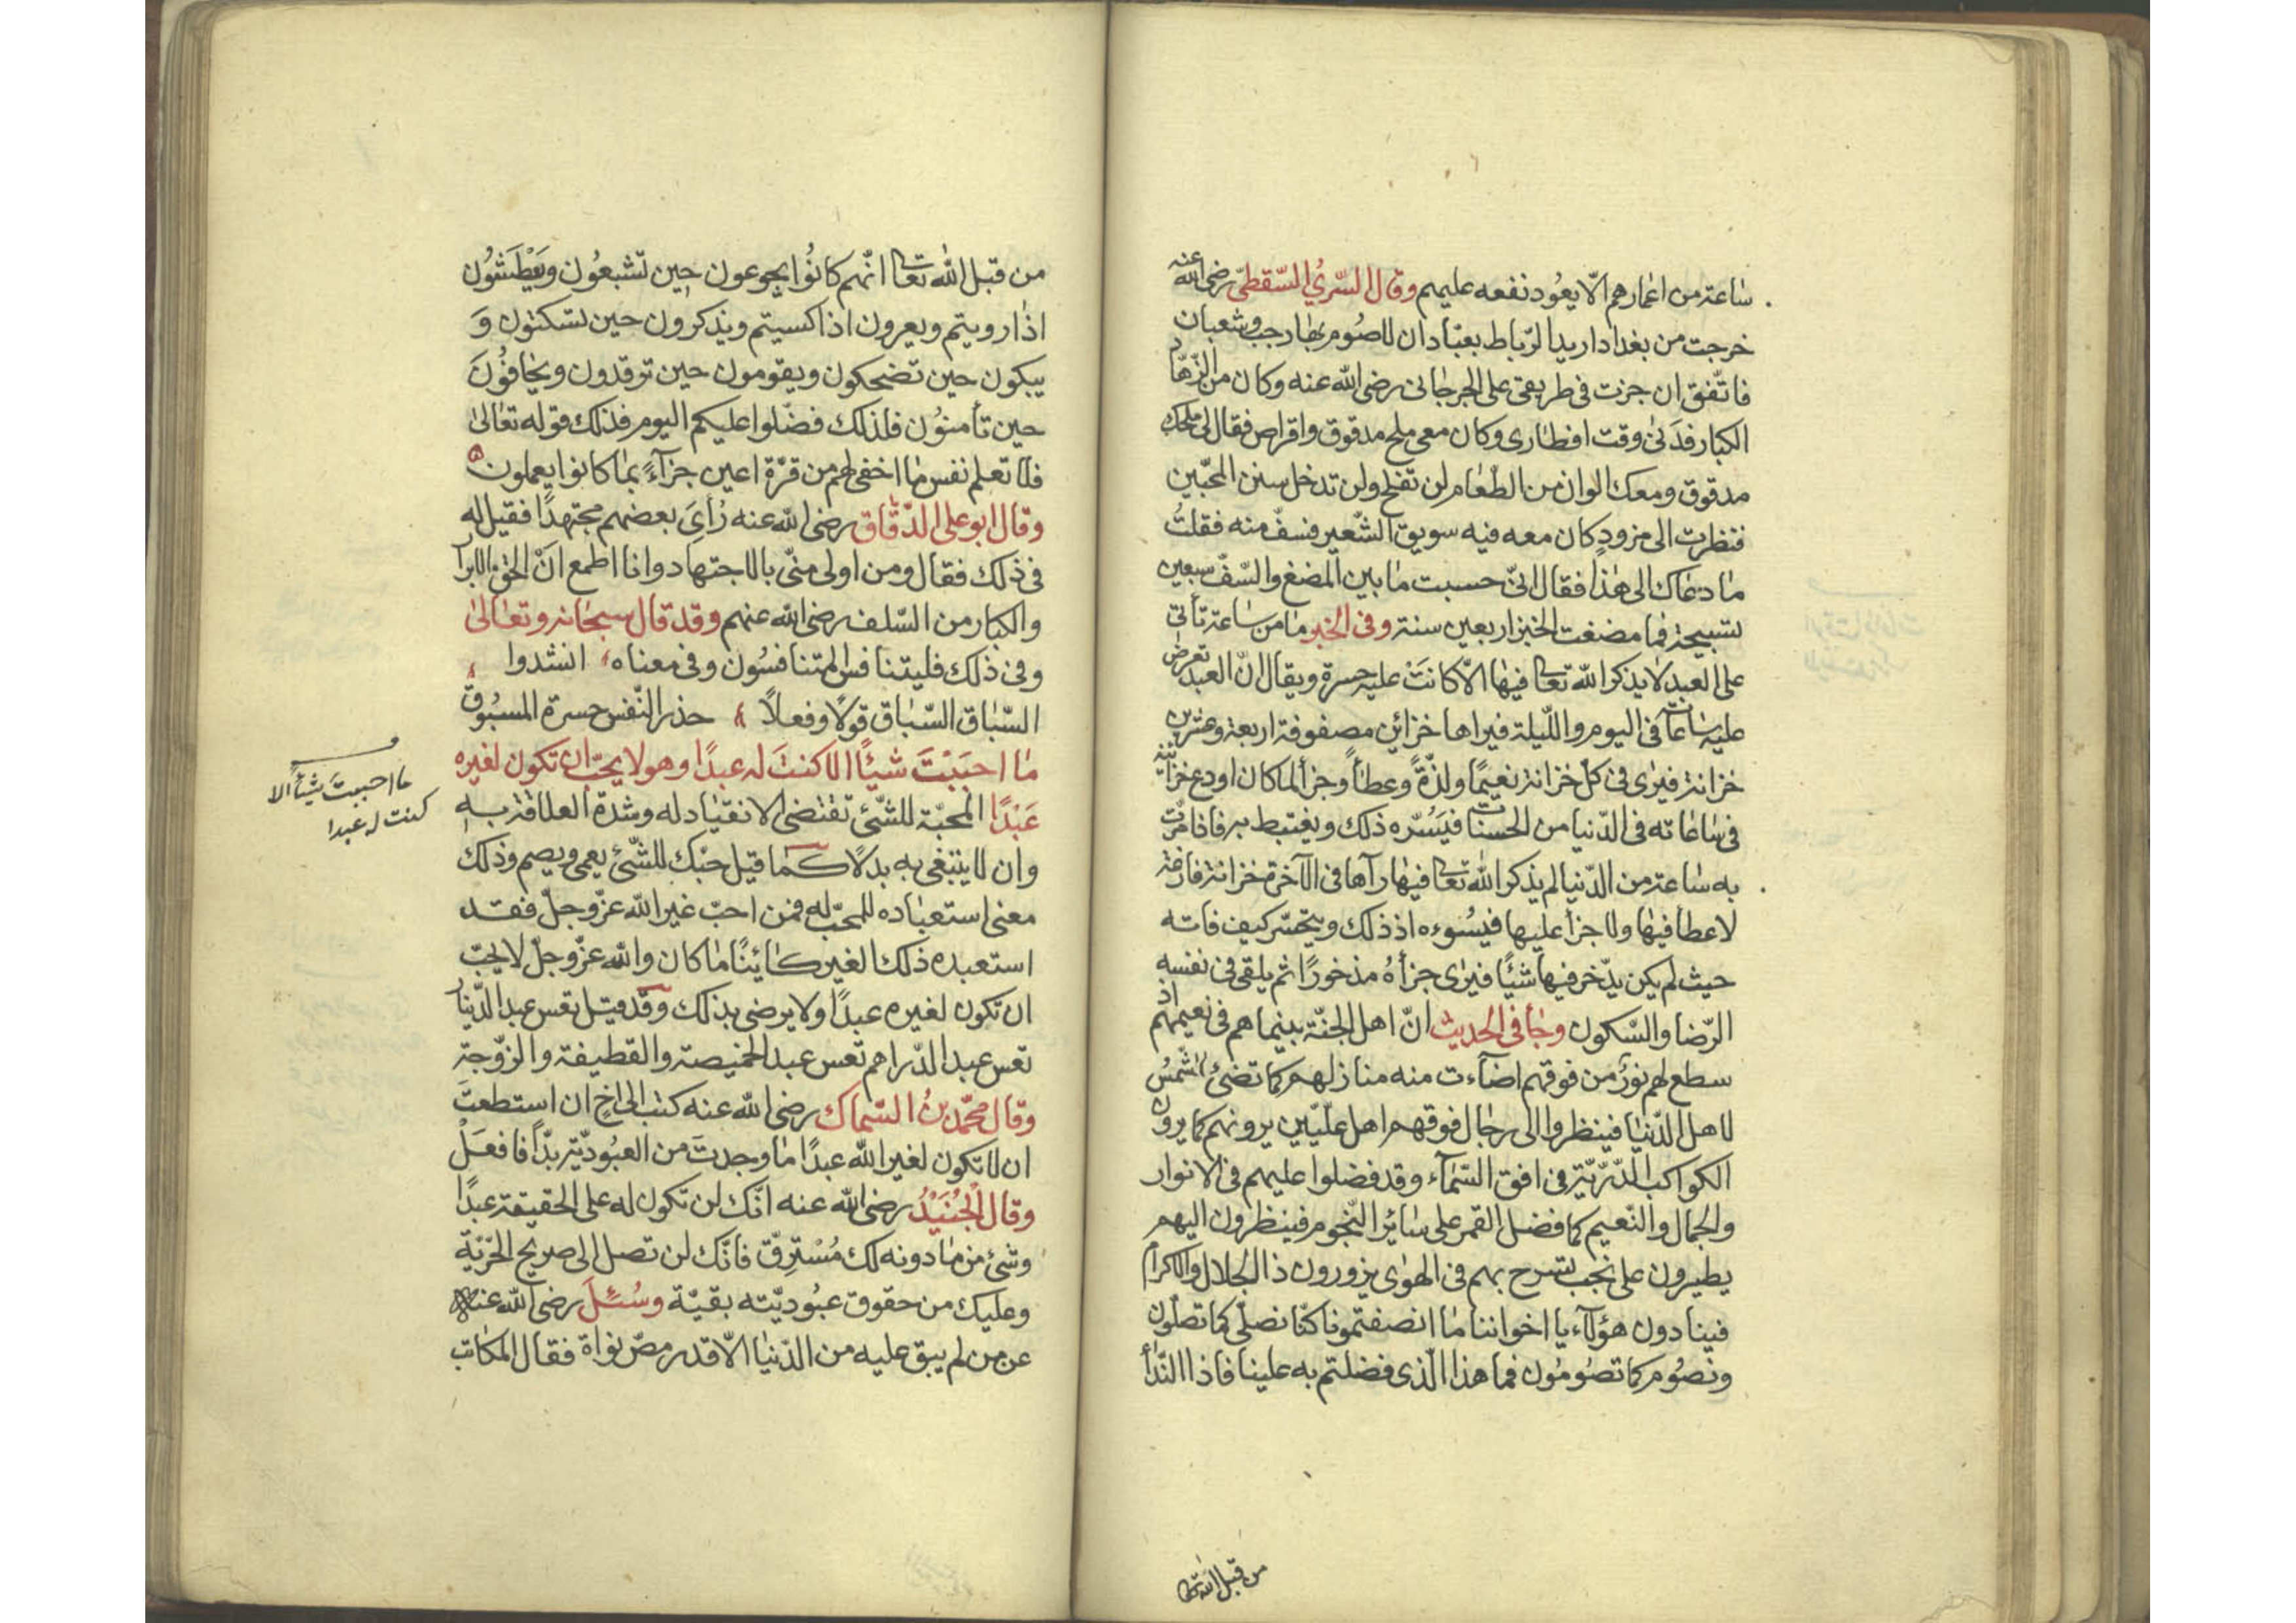 ساعة من اعمارهم الّا يعُود نفعه عليهم وقال السّريُ السّقطىّ رضى الله عنه
خرجت من بغداد اريد الرّباط بعبّادان للاصُوم بها رجب وشعبان
فاتّفق ان جزت فى طريقى على الجرجانى رضى الله عنه وكان من الزّهّاد
الكبار فدَنىٰ وقت افطارى وكان معى ملح مدقوق واقراص فقال لى ملحك
مدقوق ومعك الوان من الطعام لن تفلح ولن تدخل سنن المحبّين
فنظرت الى مزودٍ كان معه فيه سويق الشّعير فسفّ منه فقلتُ
ما دعاك الى هذا فقال انىّ حسبت ما بين المضغ والسّفّ سبعين
تسبيحة فما مضغت الخبز اربعين سنة وفى الخبر ما من ساعة تأتى
على العبد لا يذكر الله تعا فيها الّا كانَتْ عليه حسرة ويقال انّ العبد تعرض
عليه ساعاته فى اليوم واللّيلة فيراها خزائن مصفوفة اربعة وعشرين
خزانة فيرٰى فى كلّ خزانة نعيمًا ولذّةً وعطأً وجزأً لما كان اودع خزانته
فى ساعاته فى الدّنيا من الحسنات فيَسُرّه ذلك ويغتبط به فاذا مرّت
به ساعة من الدّنيا لم يذكر الله تعا فيها رآها فى الآخرة خزانة فارغة
لا عطأ فيها ولا جزأ عليها فيسُوءه اذ ذلك ويتحسّر كيف فاته
حيث لم يكن يدّخر فيها شيًا فيرٰى جزأهُ مذخورًا ثم يلقى فى نفسه
الرّضا والسّكون وجأ فى الحديث انّ اهل الجنّة بينما هم فى نعيمهم اذ
سطع لهم نورٌ من فوقهم اضآءت منه منازلهم كما تضئ الشّمسُ
لاهل الدّنيا فينظروا الى رجال فوقهم اهل علّيّين يرونهم كما يرون
الكواكب الدّرّيّة فى افق السّمآء وقد فضلوا عليهم فى الانوار
والجمال والنّعيم كما فضل القمر على سائر النّجوم فينظرون اليهم
يطيرون على نجب تسرح بهم فى الهوٰى يزورون ذا الجلال والاكرام
فينادون هؤلآء يا اخواننا ما انصفتمونا كنّا نصلّى كما تصلّون
ونصُوم كما تصُومُون فما هذا الّذى فضلتم به علينا فاذا النّدأ
من قبل الله تعا
من قبل الله تعا انّهم كانُوا يجوعون حين تشبعُون ويَعْطَشُون
اذا رويتم ويعرون اذا كسيتم ويذكرون حين تسكتون وَ
يبكون حين تضحكون ويقومون حين ترقدون ويخافُونَ
حين تأمنوُن فلذلك فضّلوا عليكم اليوم فذلك قوله تعالىٰ
فلا تعلم نفس ما اخفى لهم من قرّة اعين جزآءً بما كانوا يعملون
وقال ابو على الدّقّاق رضى الله عنه رُأىَ بعضهم مجتهدًا فقيل له
فى ذلك فقال ومن اولى منّى بالاجتهاد وانا اطمع انْ الحق الابرار
والكبار من السّلف رضى الله عنهم وقد قال سبحانه وتعالىٰ
وفى ذلك فليتنافس المتنافسُون وفى معناه انشدوا
السّباق السّباق قولًا وفعلاً حذر النّفس حسرة المسبُوق
ما احبَبْتَ شيئًا الا كنتَ له عبدًا وهو لا يحبّ ان تكون لغيره
عَبْدًا المحبّة للشّئ تقتضى الانقياد له وشدة العلاقة به
وان لا ينبغى به بدلًا كما قيل حبّك للشّئ يعمى ويصم وذلك
معنى استعباده للمحبّ له فمن احبّ غير الله عزّ وجلّ فقد
استعبده ذلك الغير كائنًا ما كان والله عزّ وجلّ لا يحبّ
ان تكون لغيره عبدًا ولا يرضى بذلك وقد قيل تعس عبد الدّينار
تعس عبد الدّراهم تعس عبد الخميصة والقطيفة والزّوجة
وقال محمّد بنُ السّماك رضى الله عنه كتب الى اخٍ ان استطعتَ
ان لا تكون لغير الله عبدًا ما وجدتَ من العبُوديّة بدّاً فافعَلْ
وقال الْجُنَيْدُ رضى الله عنه انّك لن تكون له على الحقيقة عبدًا
وشئ من ما دونه لك مُسْتَرِقّ فانّك لن تصل الى صريح الحرّيّة
وعليك من حقوق عبُوديّته بقيّة وسُئِلَ رضى الله عنه
عن من لم يبق عليه من الدّنيا الّا قدر مصّ نواة فقال المكاتب
ما احببتَ شيئاً الا
كنت له عبدا